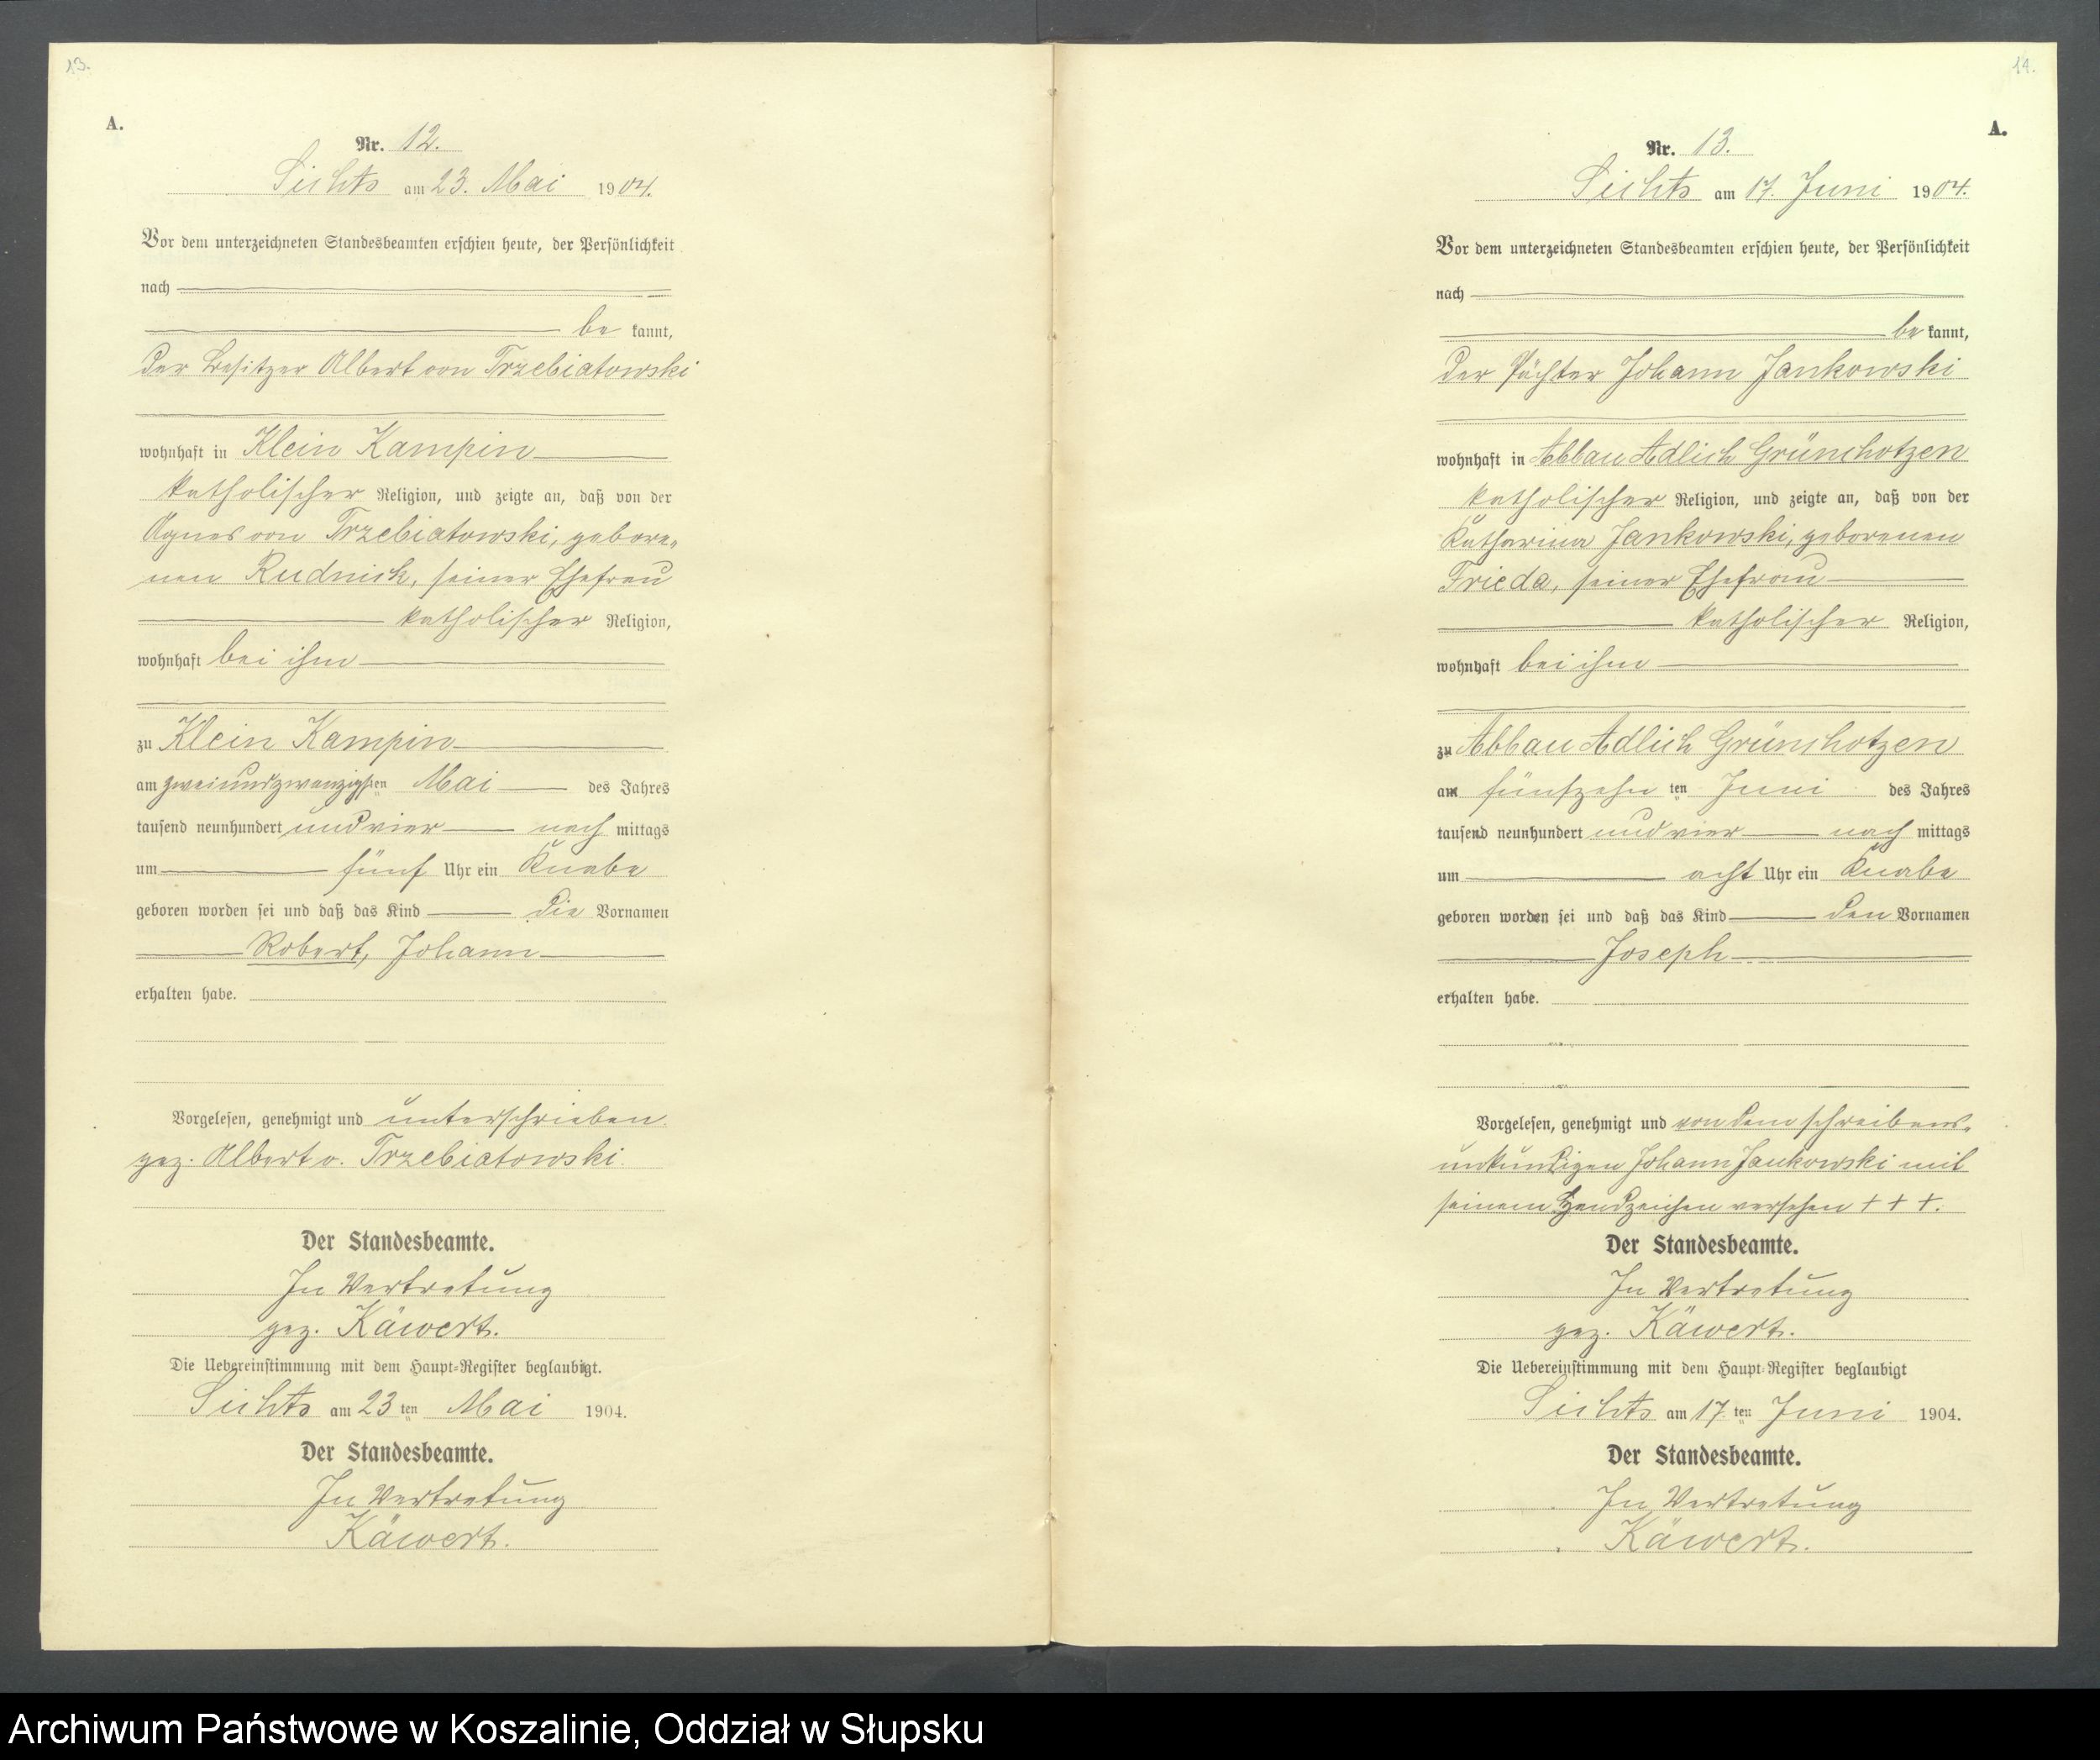 13.
A.
Nr. 12.
Sichts am 23. Mai 1904.
Vor dem unterzeichneten Standesbeamten erschien heute, der Persönlichkeit
nach
be kannt,
der Besitzer Albert von Trzebiatowski
wohnhaft in Klein Kampin
katholischer Religion, und zeigte an, daß von der
Agnes von Trzebiatowski, gebore-
nen Rudnick, seiner Ehefrau
katholischer Religion,
wohnhaft bei ihm
zu Klein Kampin
am zweiundzwanzigsten Mai des Jahres
tausend neunhundert und vier nach mittags
um fünf Uhr ein Knabe
geboren worden sei und daß das Kind die Vornamen
Robert, Johann
erhalten habe.
Vorgelesen, genehmigt und unterschrieben.
gez. Albert v. Trzebiatowski.
Der Standesbeamte.
In Vertretung
gez. Käwert.
Die Uebereinstimmung mit dem Haupt-Register beglaubigt.
Sichts am 23 ten Mai 1904.
Der Standesbeamte.
In Vertretung
Käwert.
14.
A.
Nr. 13.
Sichts am 17. Juni 1904.
Vor dem unterzeichneten Standesbeamten erschien heute, der Persönlichkeit
nach
be kannt,
der Pächter Johann Jankowski
wohnhaft in Abbau Adlich Grünchotzen
katholischer Religion, und zeigte an, daß von der
Katharina Jankowski, geborenen
Frieda, seiner Ehefrau
katholischer Religion,
wohnhaft bei ihm
zu Abbau Adlich Grünchotzen
am fünfzehn ten Juni des Jahres
tausend neunhundert und vier nach mittags
um acht Uhr ein Knabe
geboren worden sei und daß das Kind den Vornamen
Joseph
erhalten habe.
Vorgelesen, genehmigt und von dem schreibens-
unkundigen Johann Jankowski mit
seinem Handzeichen versehen + + +.
Der Standesbeamte.
In Vertretung
gez. Käwert.
Die Uebereinstimmung mit dem Haupt-Register beglaubigt
Sichts am 17. ten Juni 1904.
Der Standesbeamte.
In Vertretung
Käwert.
Archiwum Państwowe w Koszalinie, Oddział w Słupsku